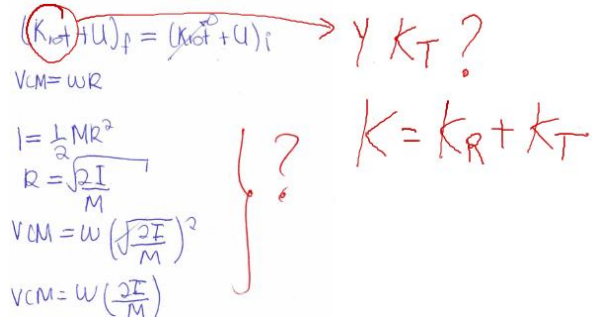 (Krot + U)f = (Krot⁰ + U)i
Y KT ?
VCM = WR
K = KR + KT
I = 1/2 MR²
R = √(2I/M)
?
VCM = W (√(2I/M))²
VCM = W (2I/M)